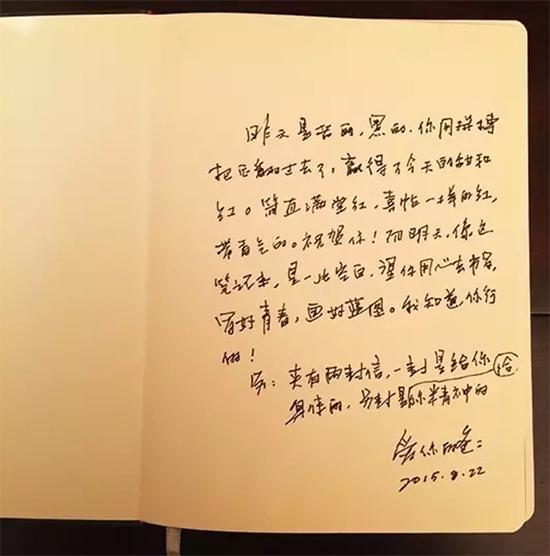 昨天是苦的，黑的，你用拼搏
把它打过去了，赢得了今天的甜和
红。简直满堂红，喜帖一样的红，
带香气的。祝贺你！而明天，像这
笔记本，是一片空白，望你用心去书写，
写好青春，画好蓝图。我知道，你行
的！
另：夹有两封信，一封是给你
具体的，另封是你精神的
爱你的爸：
2015.8.22